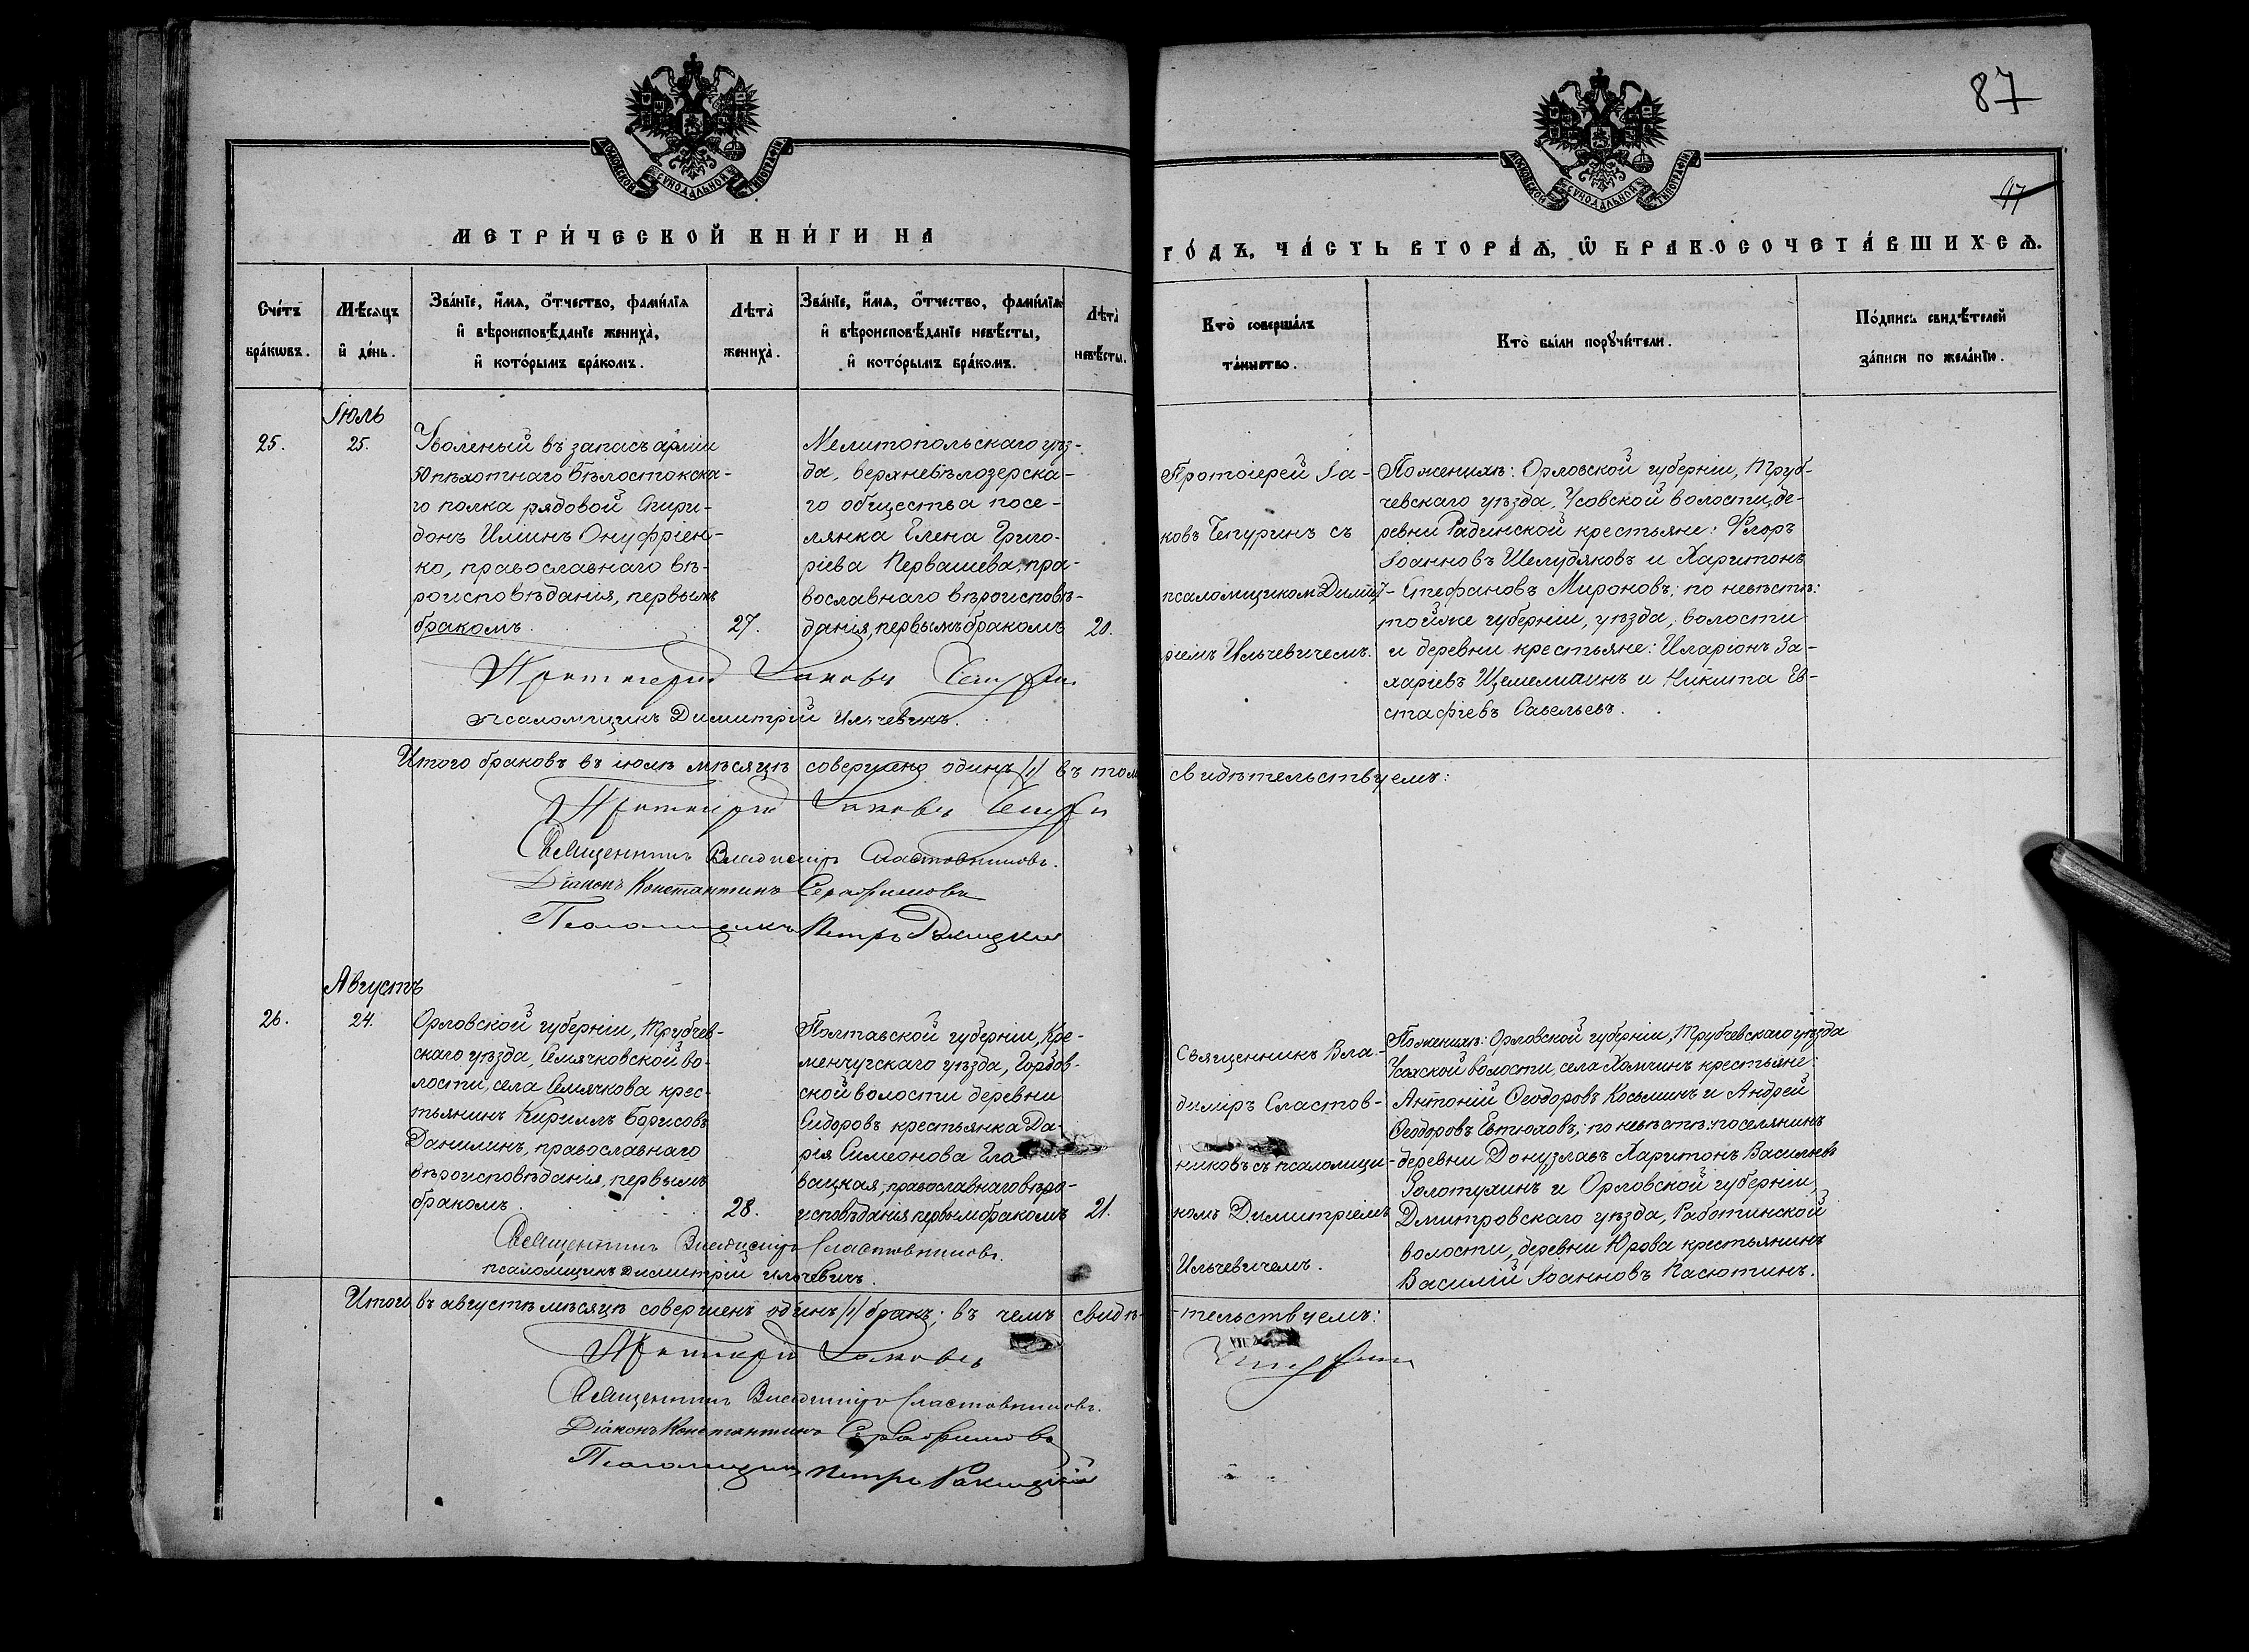 87
97
МОСКОВСКОЙ СѴНОДАЛЬНОЙ ТИПОГРАФІИ
МОСКОВСКОЙ СѴНОДАЛЬНОЙ ТИПОГРАФІИ
МЕТРИ́ЧЕСКОЙ КНИ́ГИ НА
ГО́ДЪ, ЧА́СТЬ ВТОРА́Ѧ, Ѡ҆ БРАКОСОЧЕТА́ВШИХСѦ.
Сче́тъ бра́кѡвъ.
Мѣ́сѧцъ и҆ де́нь.
Зва́нїе, и҆́мѧ, ѻ҆́тчество, фами́лїѧ
и҆ вѣроисповѣ́данїе жениха̀,
и҆ кото́рымъ бра́комъ.
Лѣта̀ жениха̀.
Зва́нїе, и҆́мѧ, ѻ҆́тчество, фами́лїѧ
и҆ вѣроисповѣ́данїе невѣ́сты,
и҆ кото́рымъ бра́комъ.
Лѣта̀ невѣ́сты.
Кто̀ соверша́лъ та́инство.
Кто̀ бы́ли порꙋчи́тели.
По́дпись свидѣ́телей
за́писи по жела́нїю.
Іюль
25.
25.
Уволеный въ запасъ арміи
50 пѣхотнаго Бѣлостокска-
го полка рядовой Спири-
донъ Илiинъ Онуфріен-
ко, православнаго вѣ-
роисповѣданія, первымъ
бракомъ.
27.
Мелитопольскаго уѣз-
да, верхнебѣлозерска-
го общества посе-
лянка Елена Григо-
ріева Первашева, пра-
вославнаго вѣроисповѣ-
данія, первымъ бракомъ
20.
Протоіерей Іа-
ковъ Чепуринъ съ
псаломщикомъ Димит-
ріемъ Ильчевичемъ.
По женихѣ: Орловской губерніи, Труб-
чевскаго уѣзда, Усовской волости, де-
ревни Радинской крестьяне: Флоръ
Іоанновъ Шелудяковъ и Харитонъ
Стефановъ Мироновъ; по невѣстѣ:
той же губерніи, уѣзда, волости
и деревни крестьяне: Иларіонъ За-
харіевъ Щемелинъ и Никита Ев-
стафіевъ Савельевъ.
Протоіерей Іаковъ Чепуринъ
Псаломщикъ Димитрій Ильчевичъ.
Итого браковъ въ іюлѣ мѣсяцѣ совершено одинъ /1/ въ томъ свидѣтельствуемъ:
Протоіерей Іаковъ Чепуринъ
Священникъ Владиміръ Сластовниковъ.
Діаконъ Константинъ Серафимовъ
Псаломщикъ Петръ Ракицкій
Августъ
26.
24.
Орловской губерніи, Трубчев-
скаго уѣзда, Семячковской во-
лости, села Семячкова крес-
тьянинъ Кириллъ Борисовъ
Данилинъ, православнаго
вѣроисповѣданія, первымъ
бракомъ.
28.
Полтавской губерніи, Кре-
менчугскаго уѣзда, Горбов-
ской волости деревни
Сидоровъ крестьянка Да-
рія Симеонова Гла-
вацкая, православнаго вѣро-
исповѣданія первымъ бракомъ
21.
Священникъ Вла-
диміръ Сластов-
никовъ съ псаломщи-
комъ Димитріемъ
Ильчевичемъ.
По женихѣ: Орловской губерніи, Трубчевскаго уѣзда
Усохской волости, села Хотчинъ крестьяне:
Антоній Ѳеодоровъ Косьминъ и Андрей
Ѳеодоровъ Евтюховъ; по невѣстѣ: поселянинъ
деревни Донузлавъ Харитонъ Васильевъ
Золотухинъ и Орловской губерніи,
Дмитровскаго уѣзда, Работинской
волости, деревни Юрова крестьянинъ
Василій Іоанновъ Пасютинъ.
Священникъ Владиміръ Сластовниковъ.
псаломщикъ Димитрій Ильчевичъ.
Итого въ августѣ мѣсяцѣ совершенъ одинъ /1/ бракъ; въ чемъ свидѣ-тельствуемъ:
Протоіерей Іаковъ Чепуринъ
Священникъ Владиміръ Сластовниковъ.
Діаконъ Константинъ Серафимовъ
Псаломщикъ Петръ Ракицкій